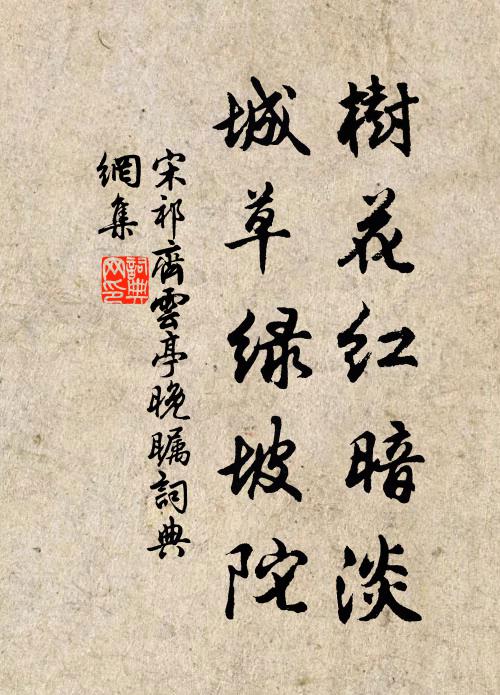 樹花紅暗淡
城草绿坡陀
宋祁齊雲亭晚瞩詞典
網集
詞典网印